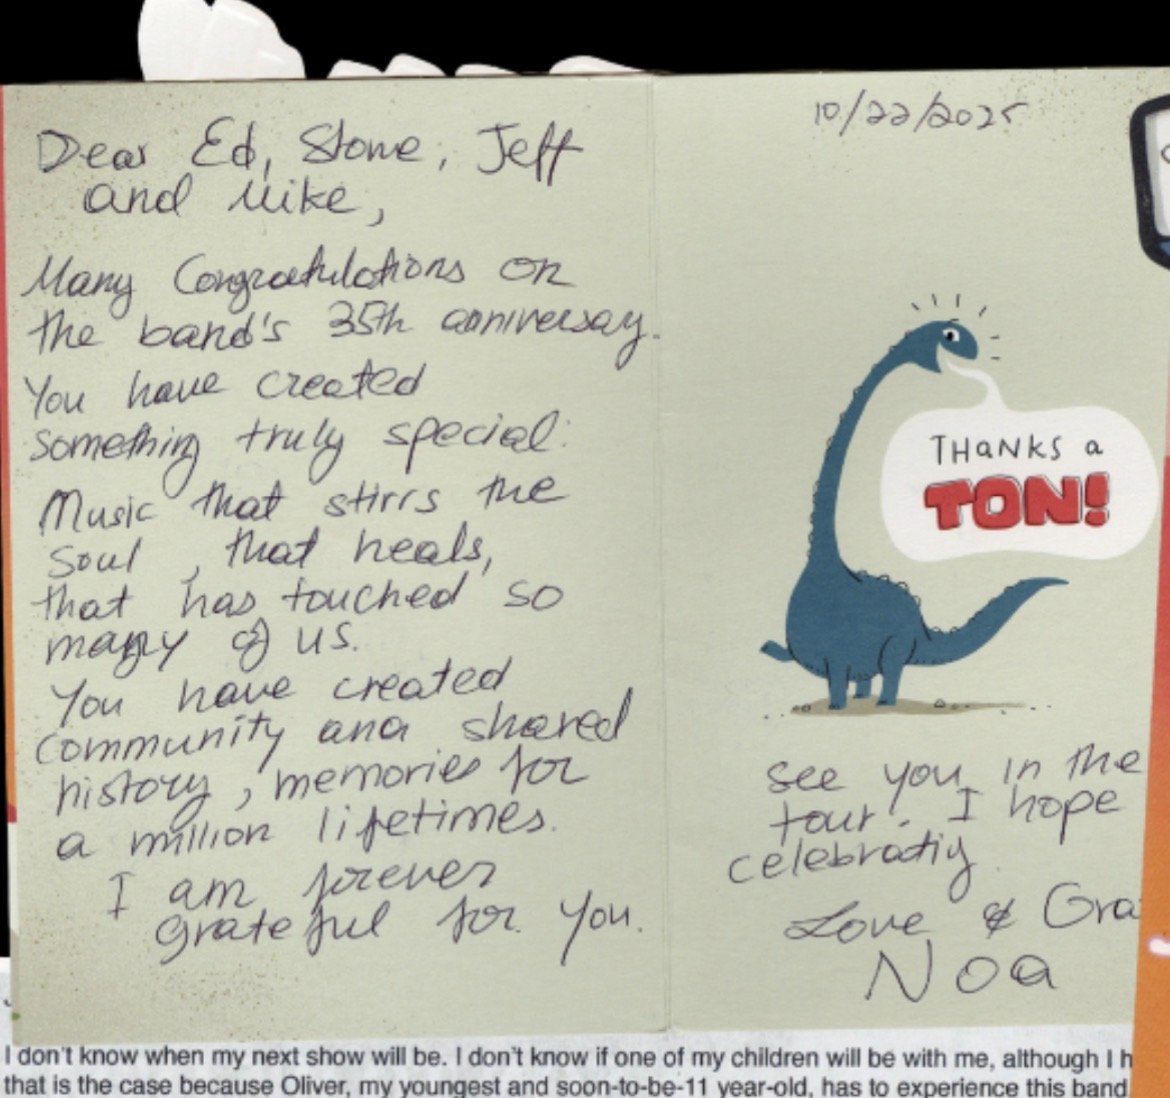 Dear Ed, Stone, Jeff
and Mike,
Many Congratulations on
the band's 35th anniversay.
You have created
something truly special:
Music that stirrs the
soul, that heals,
that has touched so
many of us.
You have created
community and shared
history, memories for
a million lifetimes.
I am forever
grateful for you.
10/22/2025
THANKS a
TON!
see you in the
tour. I hope
celebratiy
Love & Gra
Noa
I don't know when my next show will be. I don't know if one of my children will be with me, although I h
that is the case because Oliver, my youngest and soon-to-be-11 year-old, has to experience this band